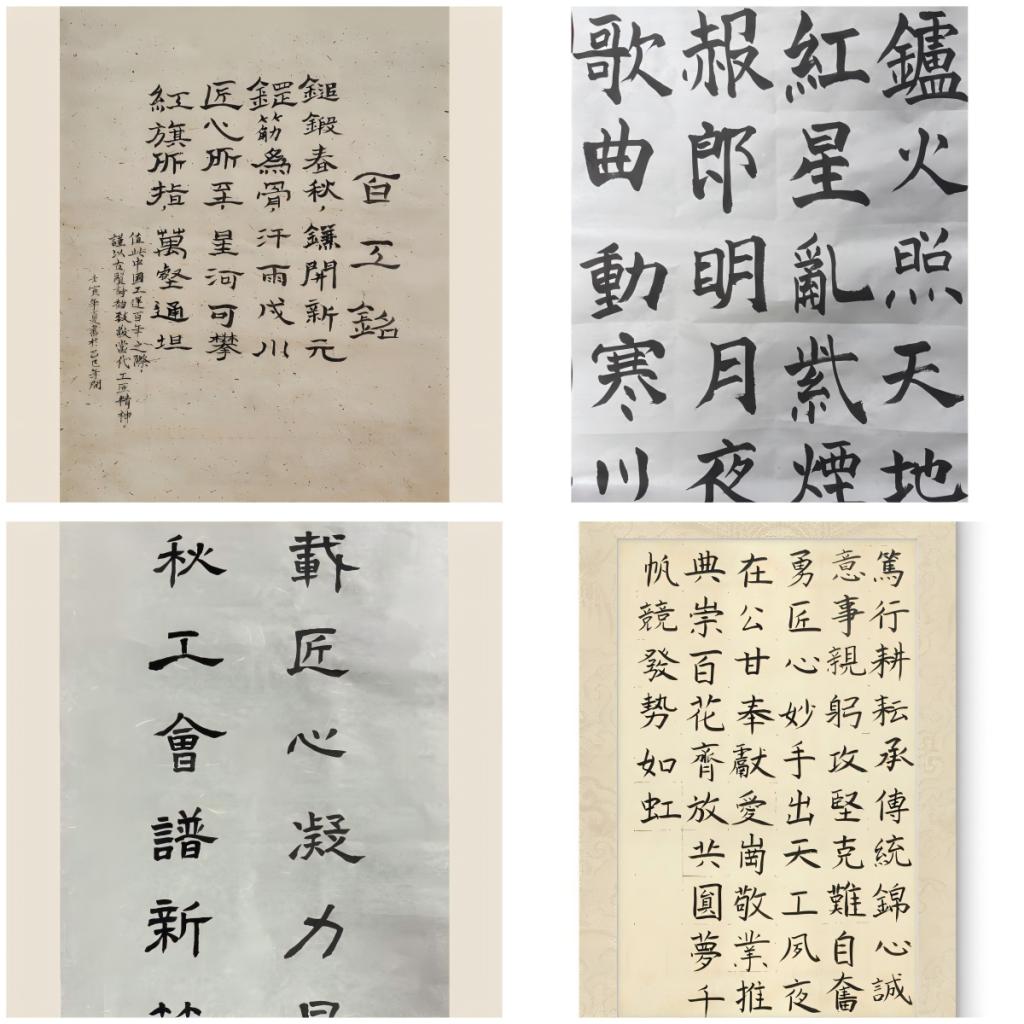 百工銘
鎚鍛春秋，鐮開新元
鋼筋為骨，汗雨成川
匠心所至，星河可攀
紅旗所指，萬壑通坦
值此中國工運百年之際，
謹以古體詩詞致敬當代工匠精神。
鑪火照天地
紅星亂紫煙
赧郎明月夜
歌曲動寒川
載匠心凝力
秋工會譜新
篤行耕耘承傳統錦心誠
意事親躬攻堅克難自奮
勇匠心妙手出天工夙夜
在公甘奉獻愛崗敬業推
典崇百花齊放共圓夢千
帆競發勢如虹